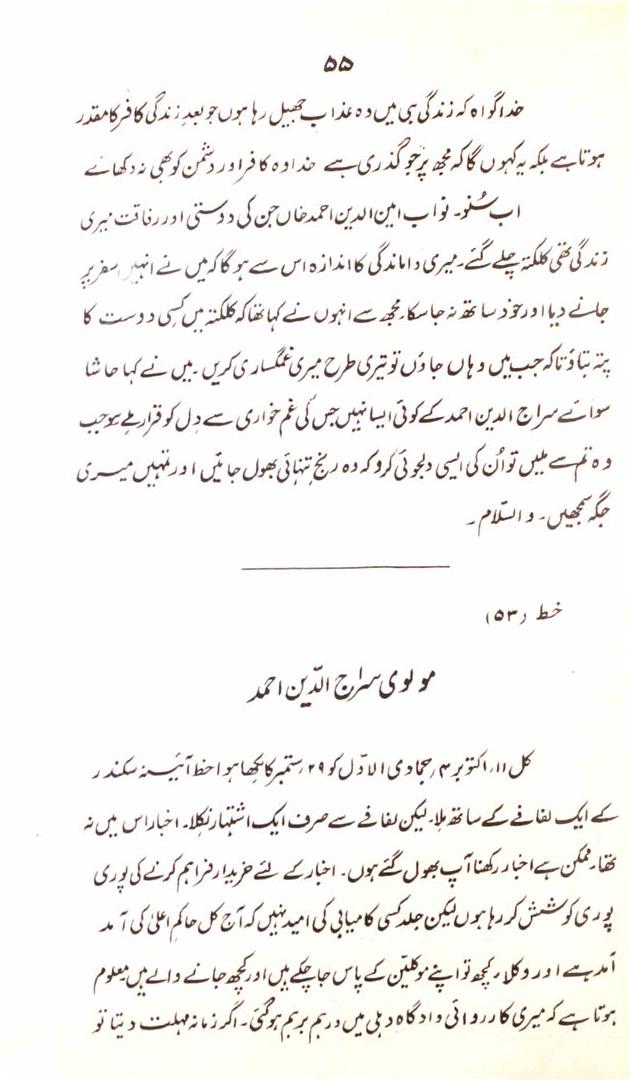 ۵۵
خدا گواہ کہ زندگی ہی میں وہ عذاب جھیل رہا ہوں جو بعدِ زندگی کافر کا مقدر
ہوتا ہے بلکہ یہ کہوں گا کہ مجھ پر جو گذری ہے خدا وہ کافر اور دشمن کو بھی نہ دکھائے
اب سُنو۔ نواب امین الدین احمد خاں جن کی دوستی اور رفاقت میری
زندگی تھی کلکتہ چلے گئے۔ میری درماندگی کا اندازہ اس سے ہوگا کہ میں نے انہیں سفر پر
جانے دیا اور خود ساتھ نہ جا سکا۔ مجھ سے انہوں نے کہا تھا کہ کلکتہ میں کسی دوست کا
پتہ بتاؤ تاکہ جب میں وہاں جاؤں تو تیری طرح میری غمگساری کریں۔ میں نے کہا حاشا
سوائے سراج الدین احمد کے کوئی ایسا نہیں جس کی غم خواری سے دل کو قرار ملے سو جب
وہ تم سے ملیں تو اُن کی ایسی دلجوئی کرو کہ وہ رنجِ تنہائی بھول جائیں اور تمہیں میری
جگہ سمجھیں۔ والسّلام۔
خط (۵۳)
مولوی سراج الدّین احمد
کل ۱۱؍ اکتوبر ۴؍ جمادی الاوّل کو ۲۹؍ ستمبر کا لکھا ہوا خط آئینہ سکندر
کے ایک لفافے کے ساتھ ملا۔ لیکن لفافے سے صرف ایک اشتہار نکلا۔ اخبار اس میں نہ
تھا۔ ممکن ہے اخبار رکھنا آپ بھول گئے ہوں۔ اخبار کے لئے خریدار فراہم کرنے کی پوری
پوری کوشش کر رہا ہوں لیکن جلد کسی کامیابی کی امید نہیں کہ آج کل حاکم اعلیٰ کی آمد
آمد ہے اور وکلاء کچھ تو اپنے موکلین کے پاس جا چکے ہیں اور کچھ جانے والے ہیں معلوم
ہوتا ہے کہ میری کارروائی دادگاہ دہلی میں درہم برہم ہوگئی۔ اگر زمانہ مہلت دیتا تو